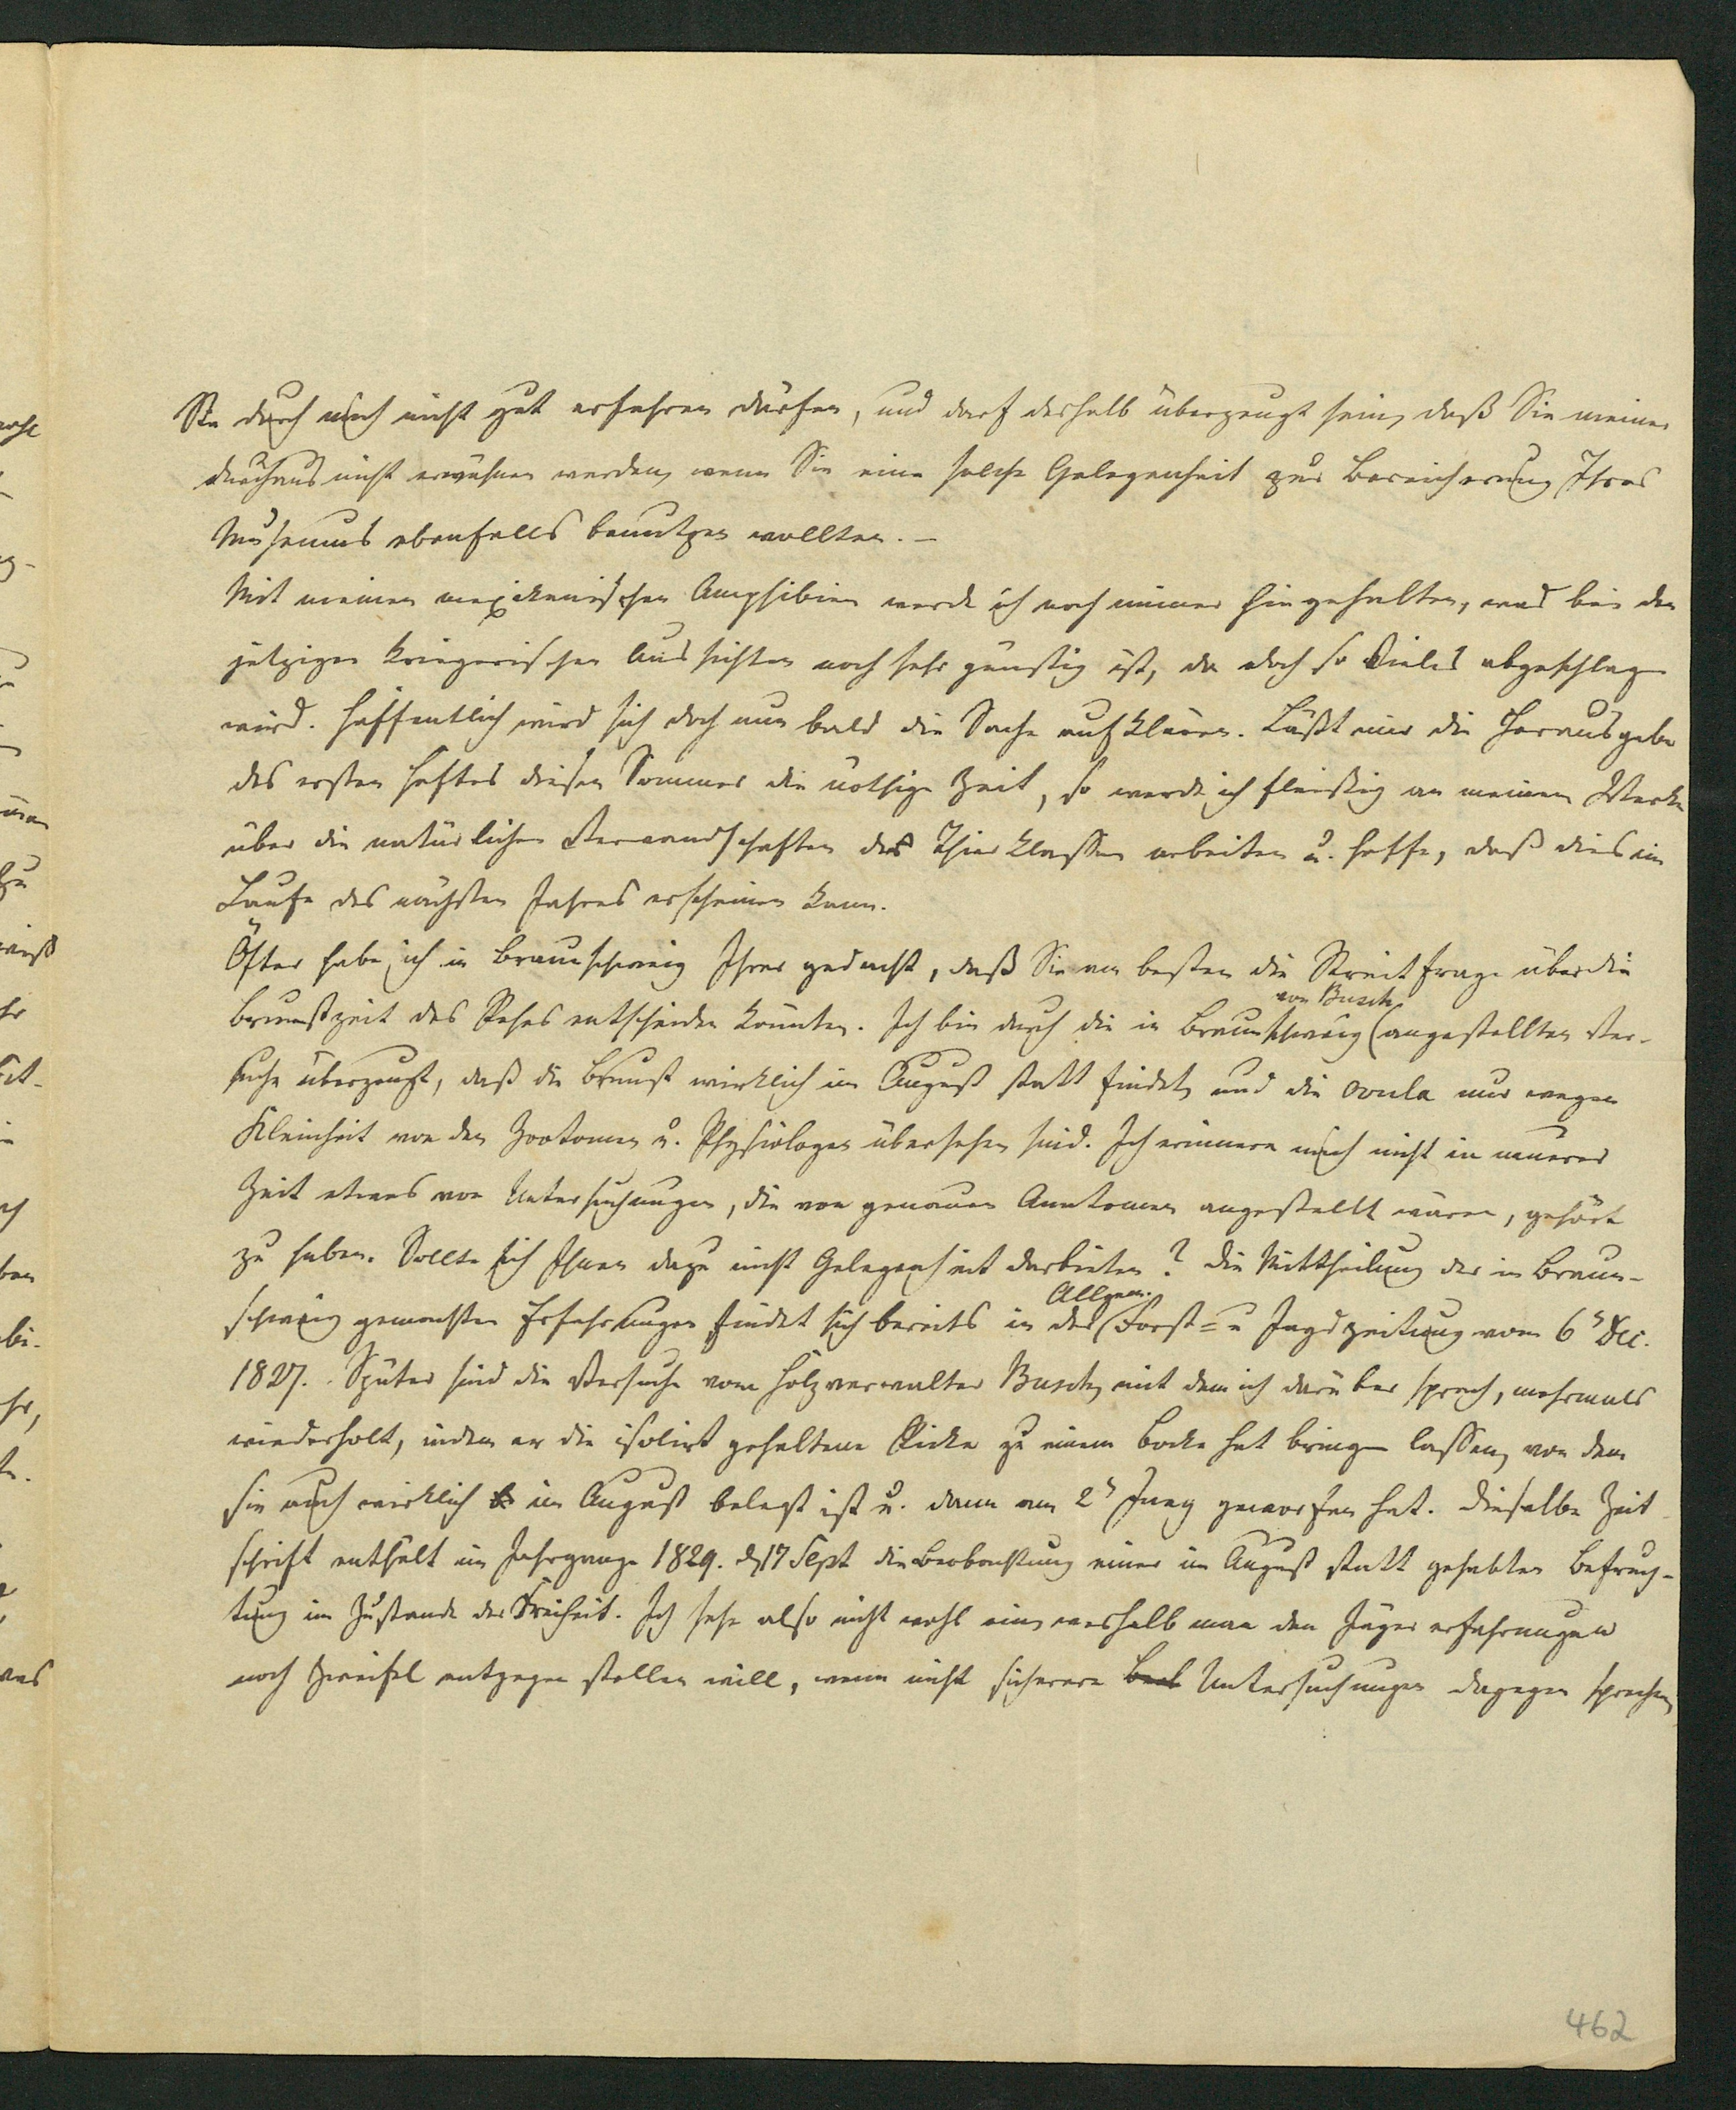 Sie durch mich nicht gut erfahren dürfen, und darf deshalb überzeugt sein, daß Sie meiner
durchaus nicht erwähnen werden, wenn Sie eine solche Gelegenheit zur Bereicherung Ihres
Museums ebenfalls benutzen wollten. –
Mit meinen mexikanischen Amphibien werde ich noch immer hingehalten, was bei den
jetzigen kriegerischen Aussichten noch sehr günstig ist, da doch so Vieles abgeschlagen
wird. Hoffentlich wird sich doch nun bald die Sache aufklären. Läßt mir die Herausgabe
des ersten Heftes diesen Sommer die nöthige Zeit, so werde ich fleißig an meinem Werke
über die natürlichen Verwandschaften der Thierklassen arbeiten u. hoffe, daß dies im
Laufe des nächsten Jahres erscheinen kann.
Öfter habe ich in Braunschweig Ihrer gedacht, daß Sie am besten die Streitfrage über die
von Busch
Brunstzeit des Rehes entscheiden könnten. Ich bin durch die in Braunschweig angestellten Ver-
suche überzeugt, daß die Brunst wirklich im August statt findet, und die ovula nur wegen
Kleinheit von den Zootomen u. Physiologen übersehen sind. Ich erinnere mich nicht in neuerer
Zeit etwas von Untersuchungen, die von genauen Anatomen angestellt wären, gehört
zu haben. Sollte sich Ihnen dazu nicht Gelegenheit darbieten? Die Mittheilung der in Braun-
Allgem.
schweig gemachten Erfahrungen findet sich bereits in der Forst- u Jagdzeitung vom 6t Dec.
1827. Später sind die Versuche vom Holzverwalter Busch, mit dem ich darüber sprach, mehrmals
wiederholt, indem er die isolirt gehaltene Ricke zu einem Bocke hat bringen lassen, von dem
sie auch wirklich im August belegt ist u. dann am 2t Juny geworfen hat. Dieselbe Zeit
schrift enthält im Jahrgange 1829. d. 17 Sept die Beobachtung einer im August statt gehabten Befruch-
tung im Zustande der Freiheit. Ich sehe also nicht wohl ein, weshalb man den Jägererfahrungen
noch Zweifel entgegen stellen will, wenn nicht sicherere Untersuchungen dagegen sprechen,
462